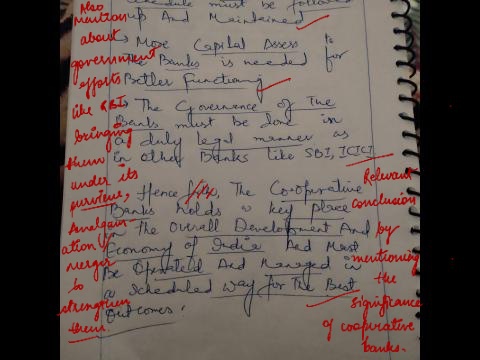 Schedule must be followed
up And Maintained
→ More Capital Assess to
The Banks is needed for
Better Functioning
→ The Governence of The
Banks must be done in
a duly legal manner as
in other Banks like SBI, ICICI
Hence, The Co-operative
Banks holds a key place
in The Overall Development And
Economy of India And Must
Be Operated And Managed in
a Scheduled way for The Best
Outcomes.
Also
mention
about
government
efforts
like RBI
bringing
them
under its
purview,
Amalgam
ation/
merger
to
strengthen
them.
Relevant
conclusion
by
mentioning
the
significance
of cooperative
banks.